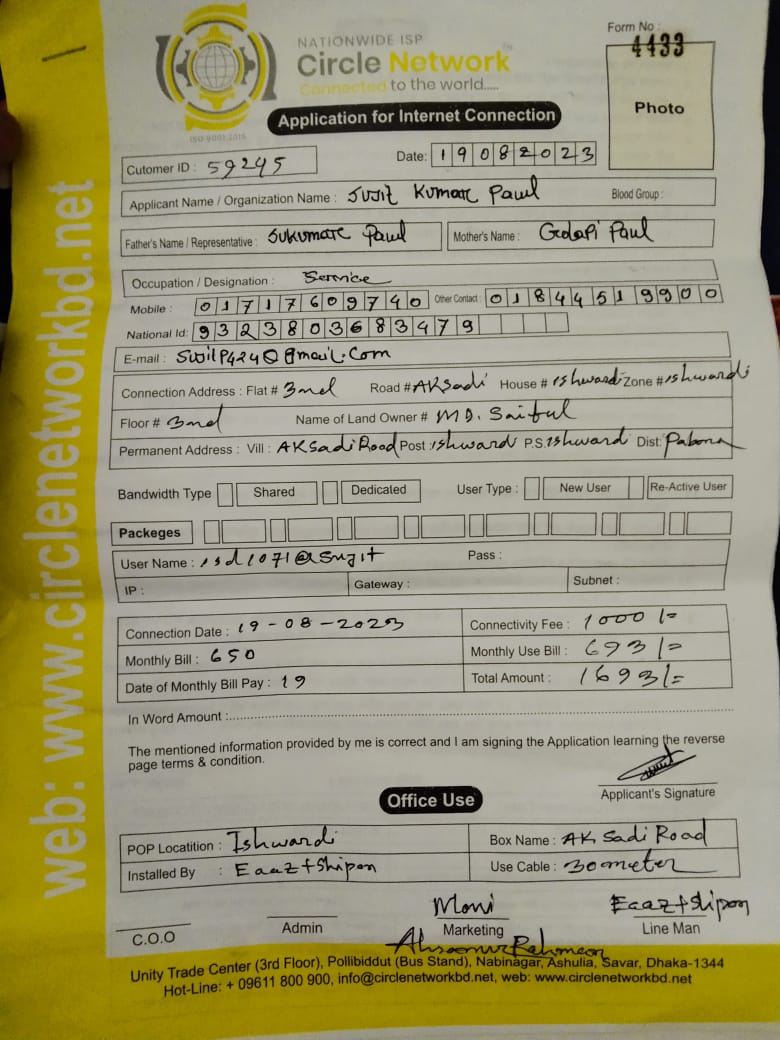 Form No :
4433
NATIONWIDE ISP
Circle Network
Connected to the world.....
ISO 9001:2015
Application for Internet Connection
Photo
Cutomer ID : 59245 Date: 19082023
Applicant Name / Organization Name : Sujit Kumar Paul Blood Group :
Father's Name / Representative : Sukumar Paul Mother's Name : Golapi Paul
Occupation / Designation : Service
Mobile : 01717609740 Other Contact : 01844519900
National Id: 9323803683479
E-mail : Sujitp424@gmail.com
Connection Address : Flat # 3nd Road # AKSadi House # ishwardi Zone # ishwardi
Floor # 3nd Name of Land Owner # MD. Saiful
Permanent Address : Vill : AKSadi Road Post : ishwardi P.S. ishwardi Dist: Pabna
Bandwidth Type Shared Dedicated User Type : New User Re-Active User
Packeges
User Name : isd1071@Sujit Pass :
IP : Gateway : Subnet :
Connection Date : 19-08-2023 Connectivity Fee : 1000/=
Monthly Bill : 650 Monthly Use Bill : 693/=
Date of Monthly Bill Pay : 19 Total Amount : 1693/=
In Word Amount :
The mentioned information provided by me is correct and I am signing the Application learning the reverse
page terms & condition.
Applicant's Signature
Office Use
POP Locatition : Ishwardi Box Name : AK Sadi Road
Installed By : Eaaz+Shipon Use Cable : 30meter
Moni Eaaz+Shipon
C.O.O Admin Marketing Line Man
Unity Trade Center (3rd Floor), Pollibiddut (Bus Stand), Nabinagar, Ashulia, Savar, Dhaka-1344
Hot-Line: + 09611 800 900, info@circlenetworkbd.net, web: www.circlenetworkbd.net
web: www.circlenetworkbd.net